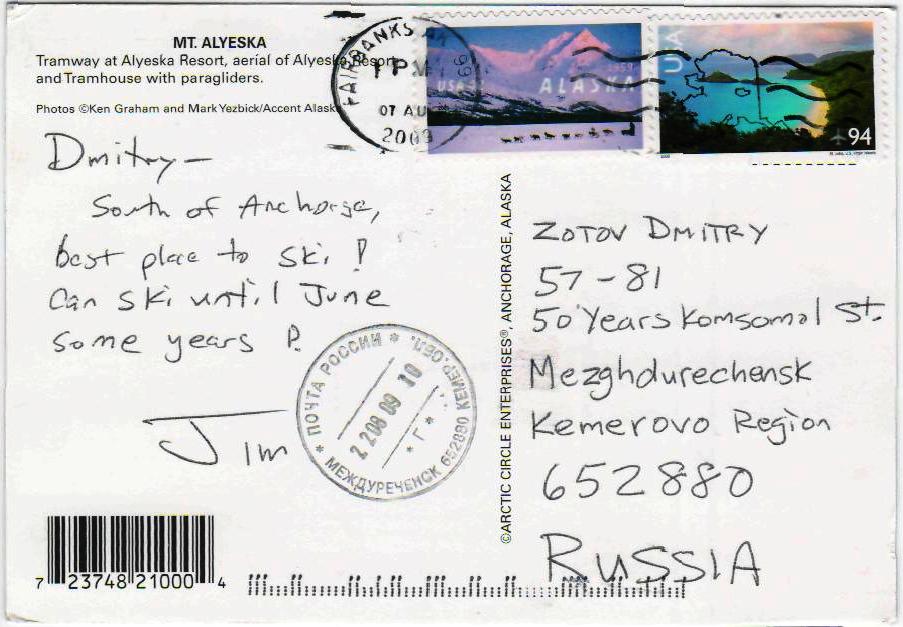 MT. ALYESKA
Tramway at Alyeska Resort, aerial of Alyeska Resort
and Tramhouse with paragliders.
Photos ©Ken Graham and Mark Yezbick/Accent Alaska
FAIRBANKS AK
PM
07 AU
2009
USA
1959
ALASKA
USA
94
Dmitry –
South of Anchorage,
best place to ski!
Can ski until June
some years!
Jim
ПОЧТА РОССИИ * КЕМЕР.ОБЛ.
22 08 09 10
* Г *
* МЕЖДУРЕЧЕНСК 652880
©ARCTIC CIRCLE ENTERPRISES®, ANCHORAGE, ALASKA
ZOTOV DMITRY
57-81
50 Years Komsomol St.
Mezghdurechensk
Kemerovo Region
652880
RUSSIA
7 23748 21000 4